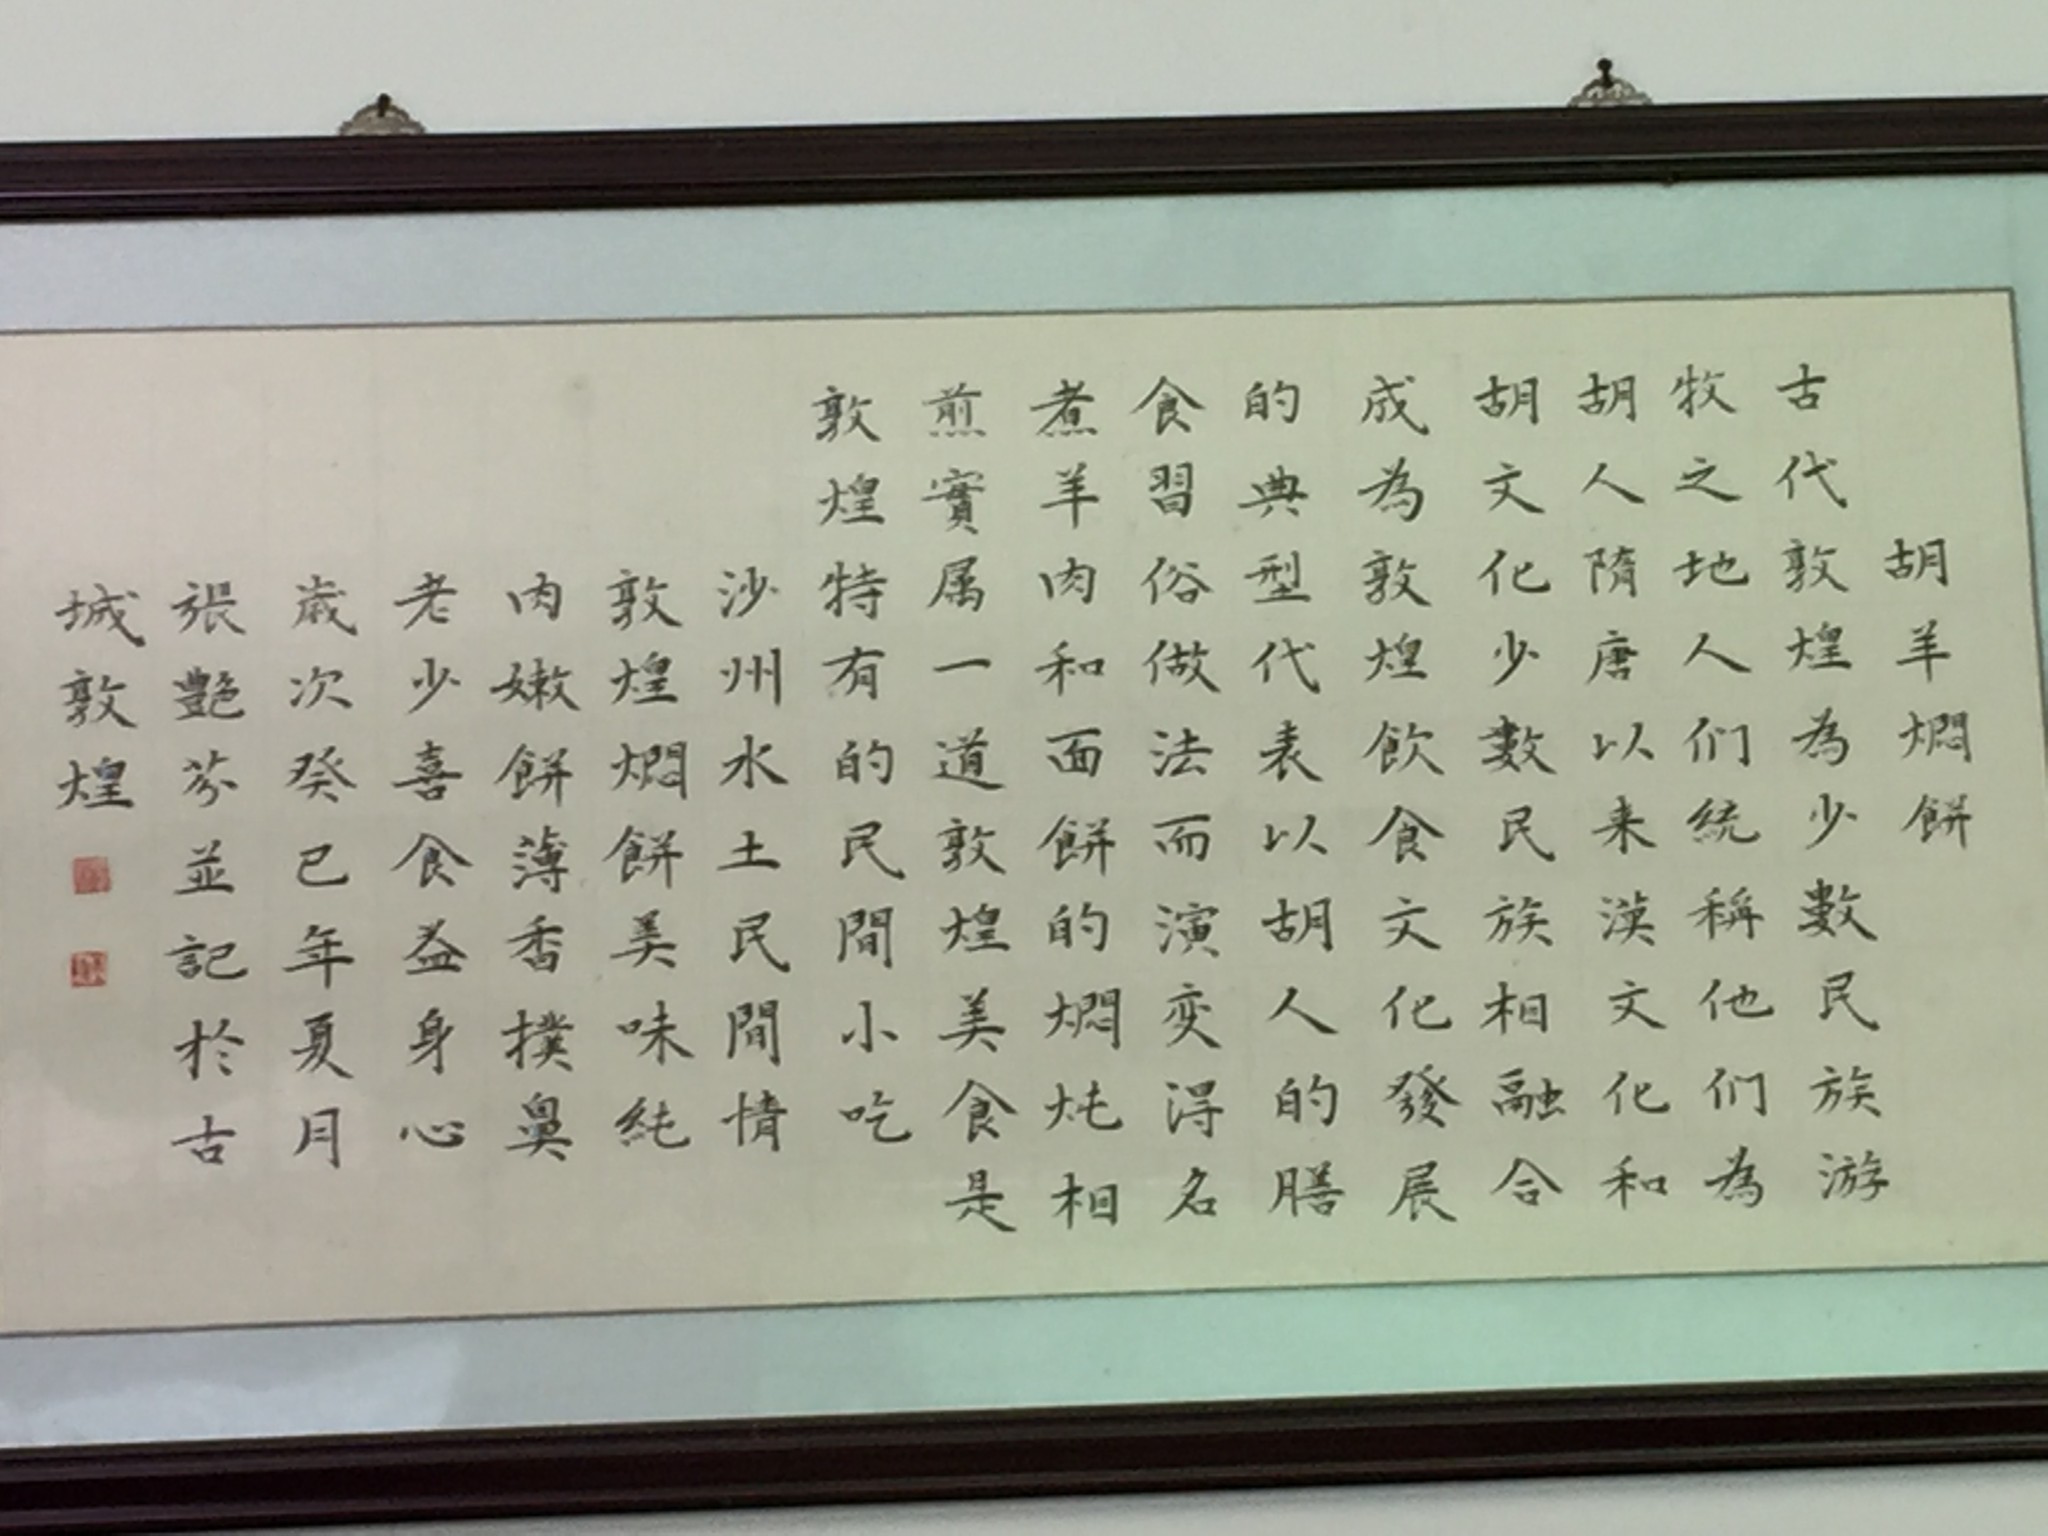 胡羊燜餅
古代敦煌為少數民族游
牧之地人们統稱他们為
胡人隋唐以来漢文化和
胡文化少數民族相融合
成為敦煌飲食文化發展
的典型代表以胡人的膳
食習俗做法而演变得名
煮羊肉和面餅的燜炖相
煎實属一道敦煌美食是
敦煌特有的民間小吃
沙州水土民間情
敦煌燜餅美味純
肉嫩餅薄香撲鼻
老少喜食益身心
歲次癸已年夏月
張艷芬並記於古
城敦煌